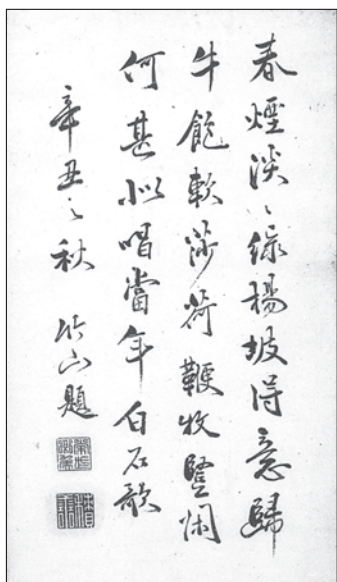 春煙淡〻緑楊坡得意歸
牛飽軟莎荷鞭牧豎閑
何甚似唱當年白石歌
辛丑之秋 竹山題